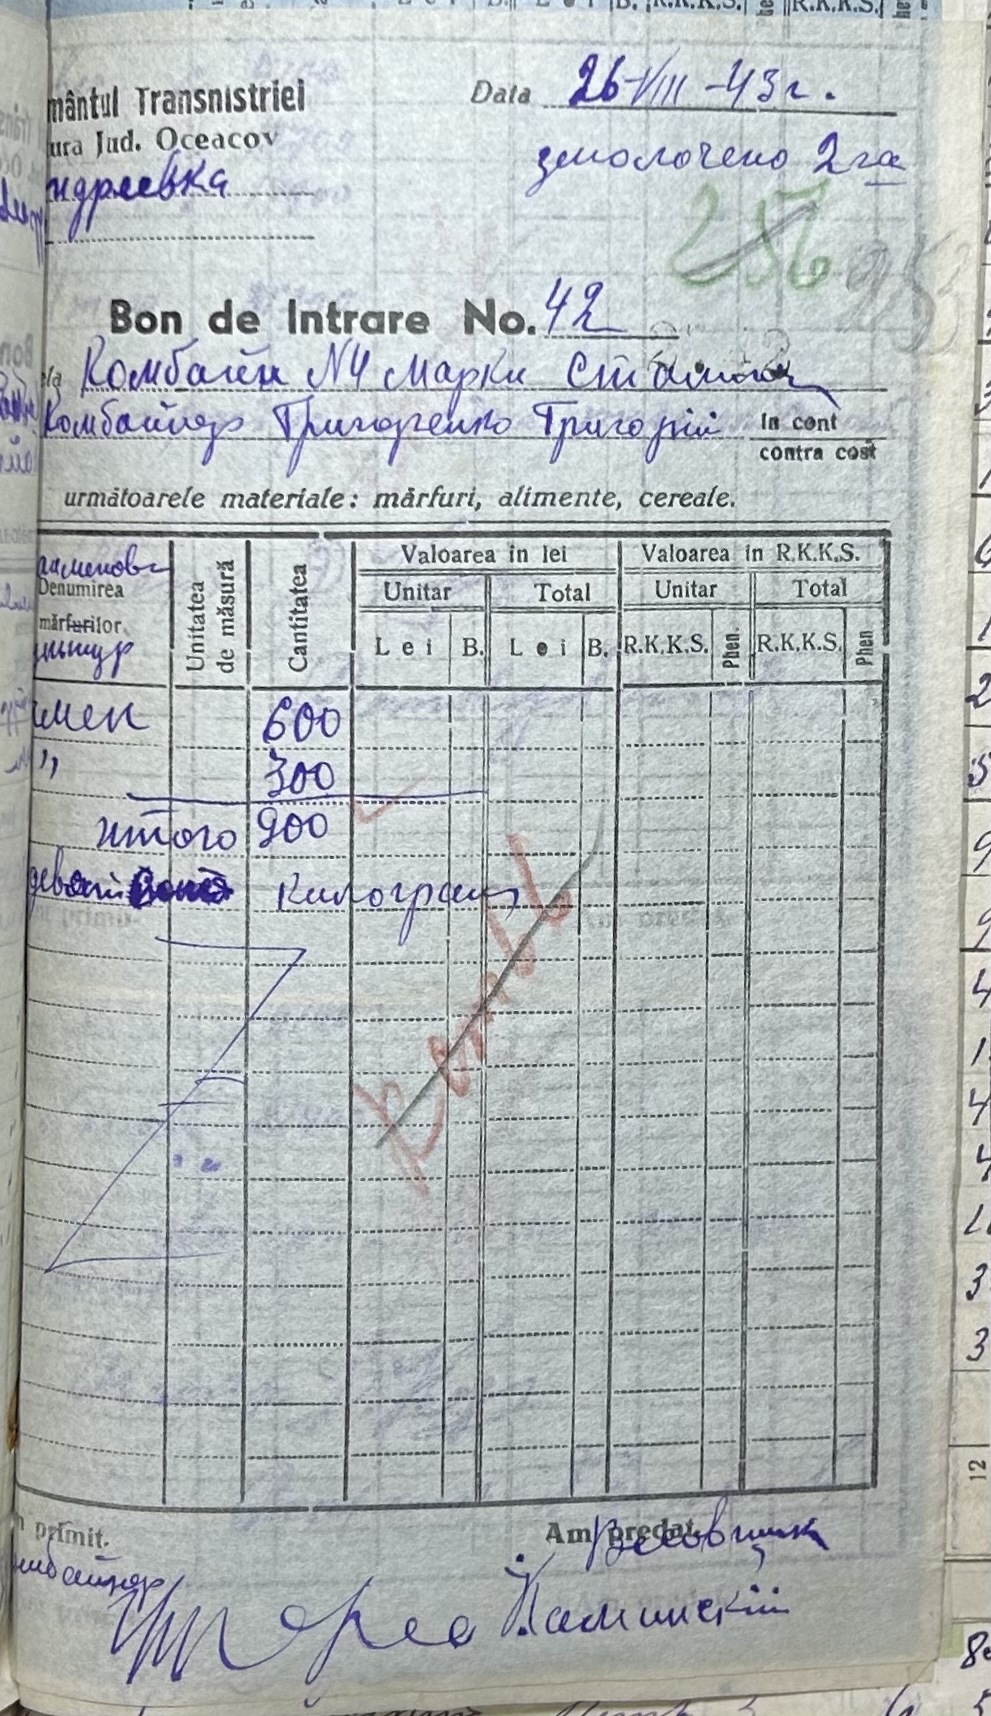 mântul Transnistriei
ura Jud. Oceacov
ндреевка
Data 26-VIII-43г.
змолочено 2 га
256
Bon de Intrare No. 42
Комбайн №4 марки
Комбайнер Григоренко Григорій
In cont
contra cost
următoarele materiale: mărfuri, alimente, cereale.
Denumirea mărfurilor
Unitatea de măsură
Cantitatea
Valoarea in lei
Valoarea in R.K.K.S.
Unitar Total Unitar Total
Lei B. Lei B. R.K.K.S. Phen. R.K.K.S. Phen
чмен 600
" 300
итого 900
килограм
primit.
Am predat,
Весовщик
мбайнер
Камінскій